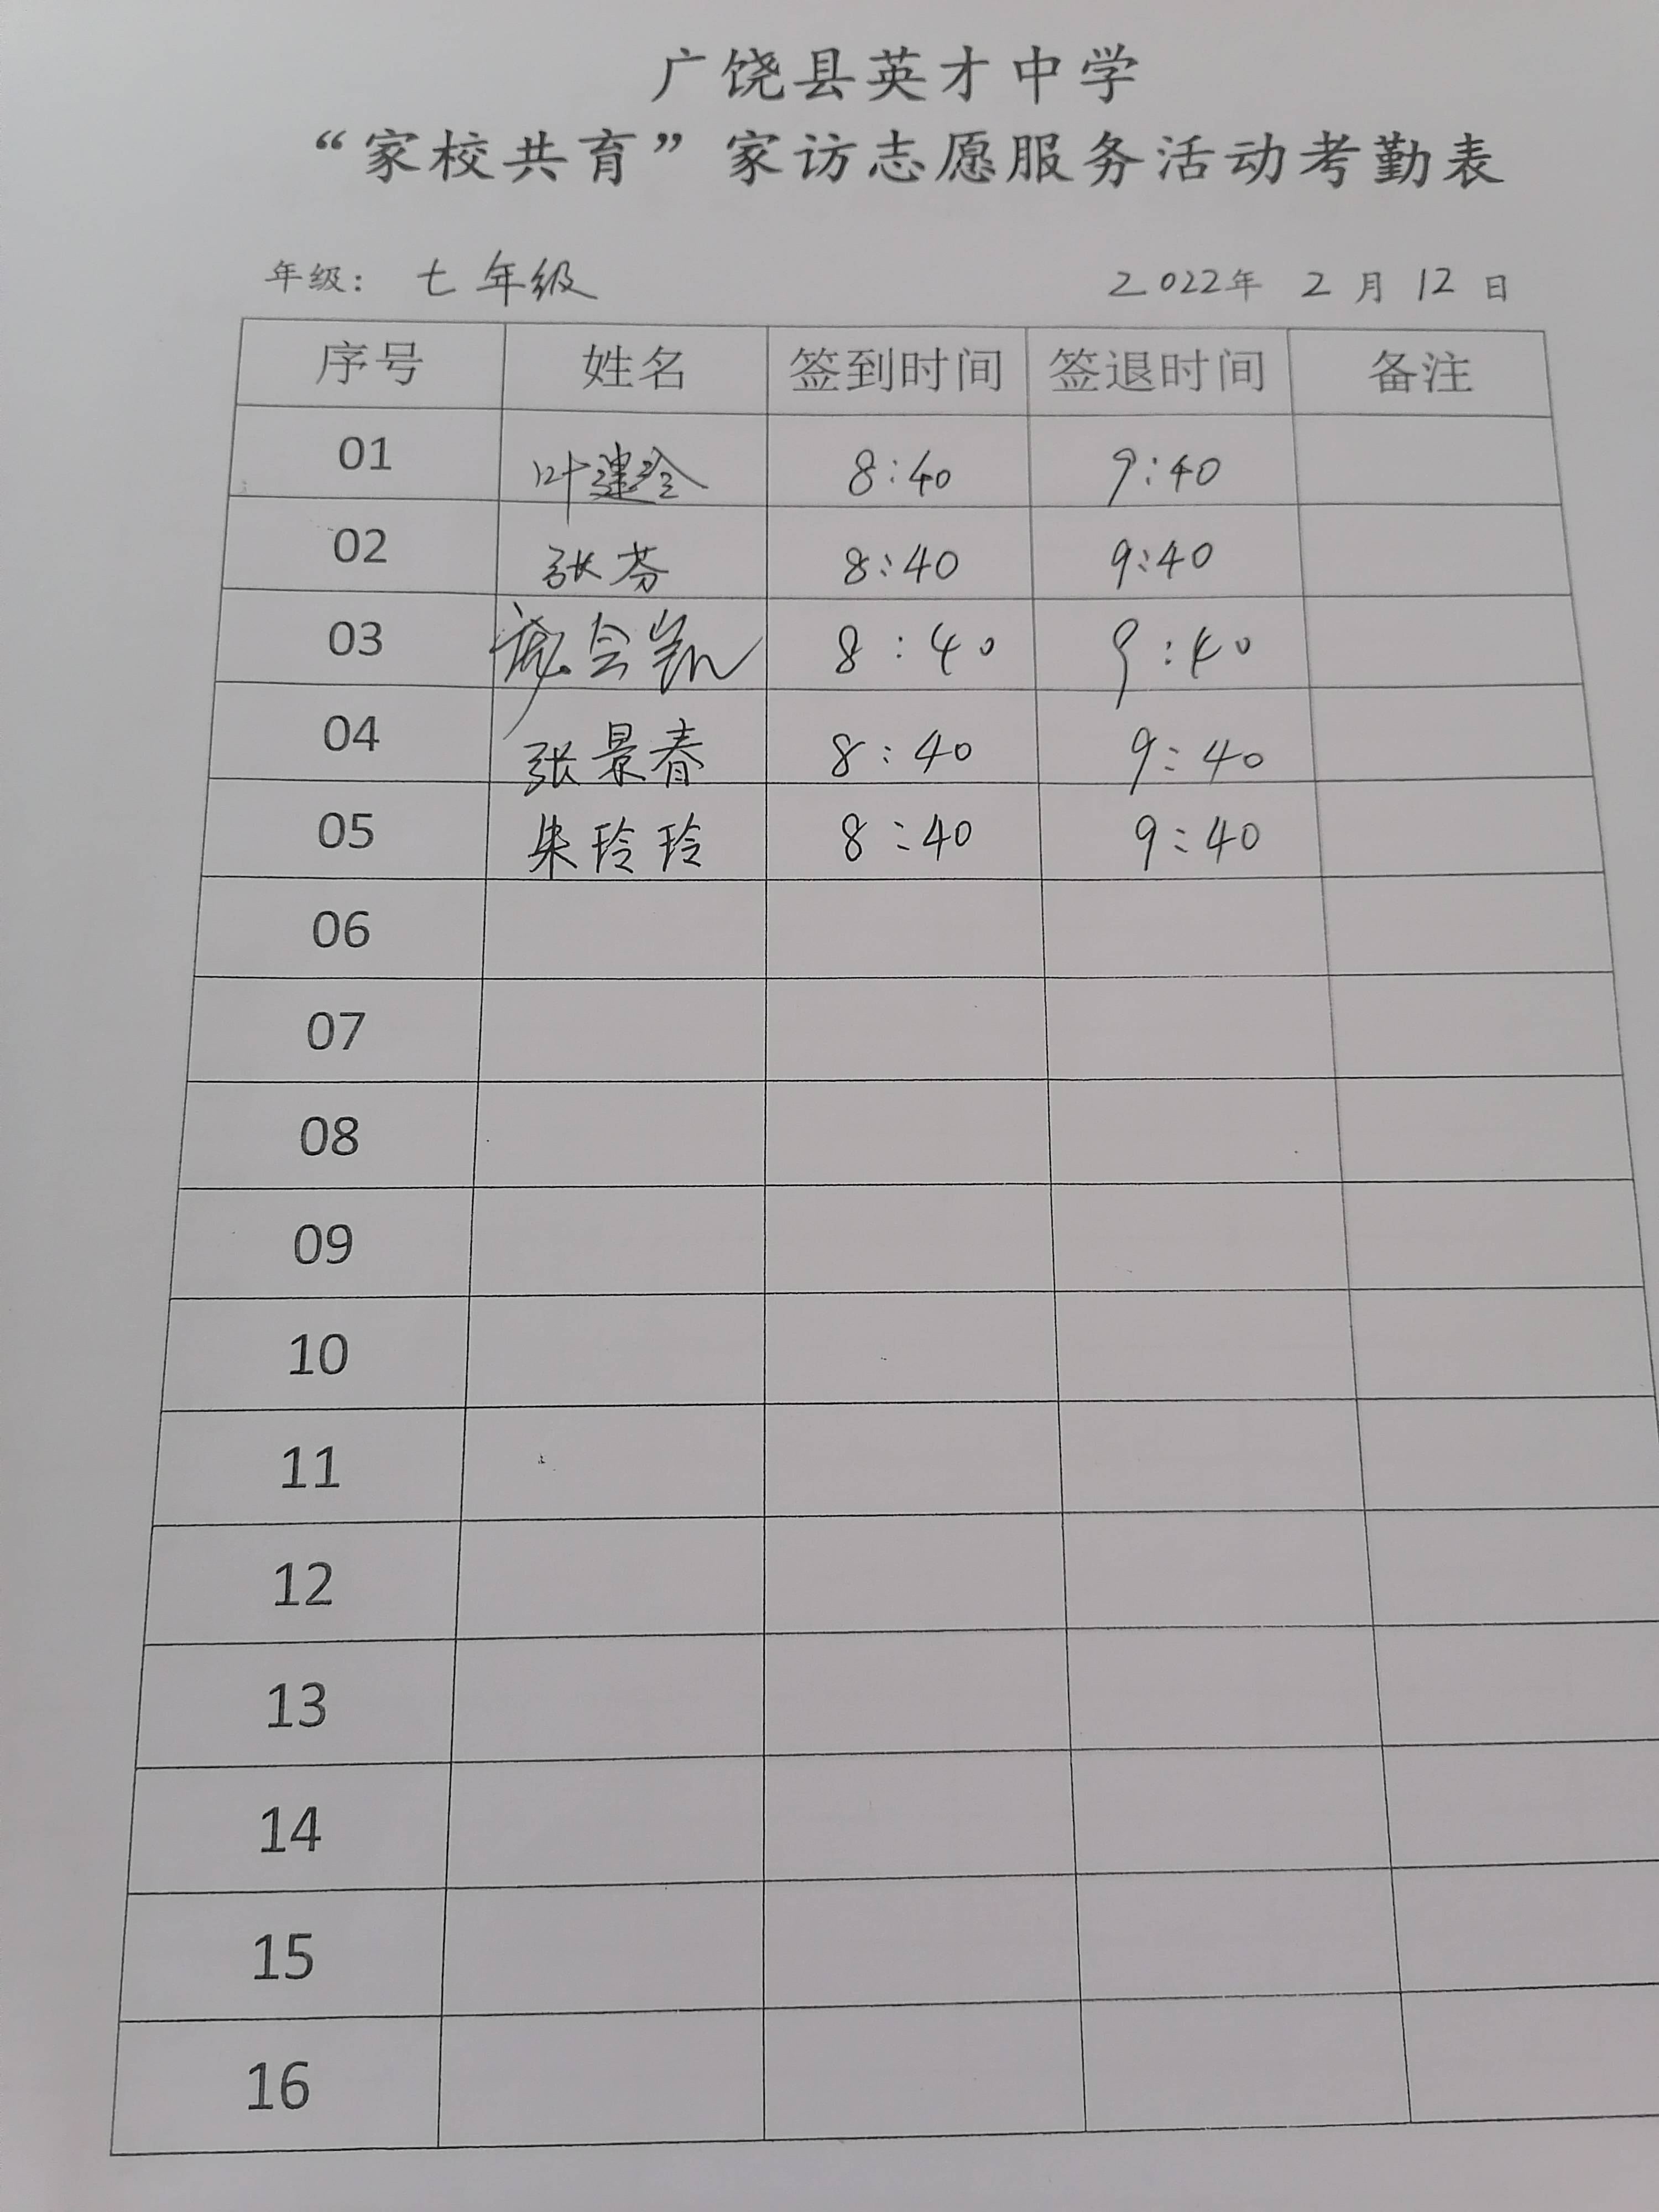 广饶县英才中学
“家校共育”家访志愿服务活动考勤表
年级：七年级 2022年 2月12日
序号 姓名 签到时间 签退时间 备注
01 叶建玲 8:40 9:40
02 张芬 8:40 9:40
03 8:40 9:40
04 张景春 8:40 9:40
05 朱玲玲 8:40 9:40
06
07
08
09
10
11
12
13
14
15
16